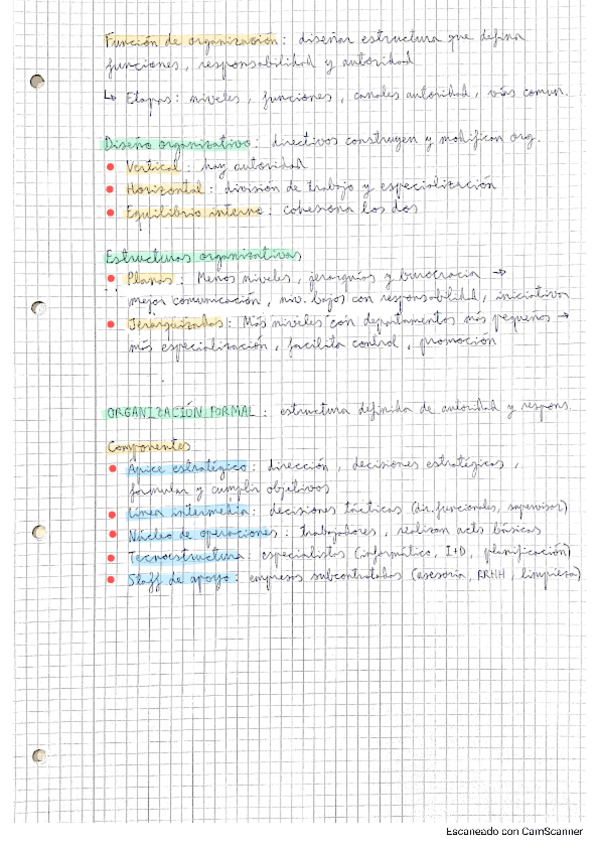 Función de organización: diseñar estructura que defina
funciones, responsabilidad y autoridad
↳ Etapas: niveles, funciones, canales autoridad, vías comun.
Diseño organizativo: directivos construyen y modifican org.
• Vertical: hay autoridad
• Horizontal: división de trabajo y especialización
• Equilibrio interno: cohesiona los dos
Estructuras organizativas
• Planas: Menos niveles, jerarquías y burocracia →
mejor comunicación, niv. bajos con responsabilidad, iniciativa
• Jerarquizadas: Más niveles con departamentos más pequeños →
más especialización, facilita control, promoción
ORGANIZACIÓN FORMAL: estructura definida de autoridad y respons.
Componentes
• Ápice estratégico: dirección, decisiones estratégicas,
formular y cumplir objetivos
• Línea intermedia: decisiones tácticas (dir. funcionales, supervisor)
• Núcleo de operaciones: trabajadores, realizan acts básicas
• Tecnoestructura: especialistas (informático, I+D, planificación)
• Staff de apoyo: empresas subcontratadas (asesoría, RRHH, limpieza)
Escaneado con CamScanner